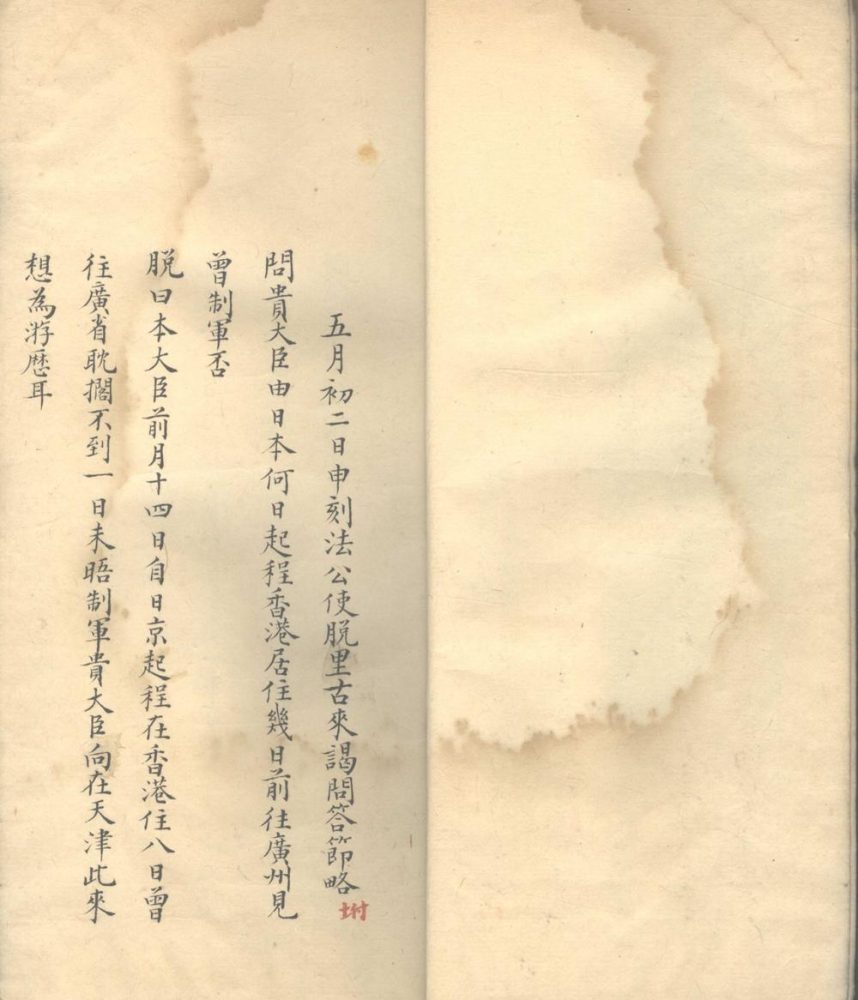 五月初二日申刻法公使脱里古來謁問答節略
坿
問貴大臣由日本何日起程香港居住幾日前往廣州見
曾制軍否
脱曰本大臣前月十四日自日京起程在香港住八日曾
往廣省耽擱不到一日未晤制軍貴大臣向在天津此來
想為游歷耳